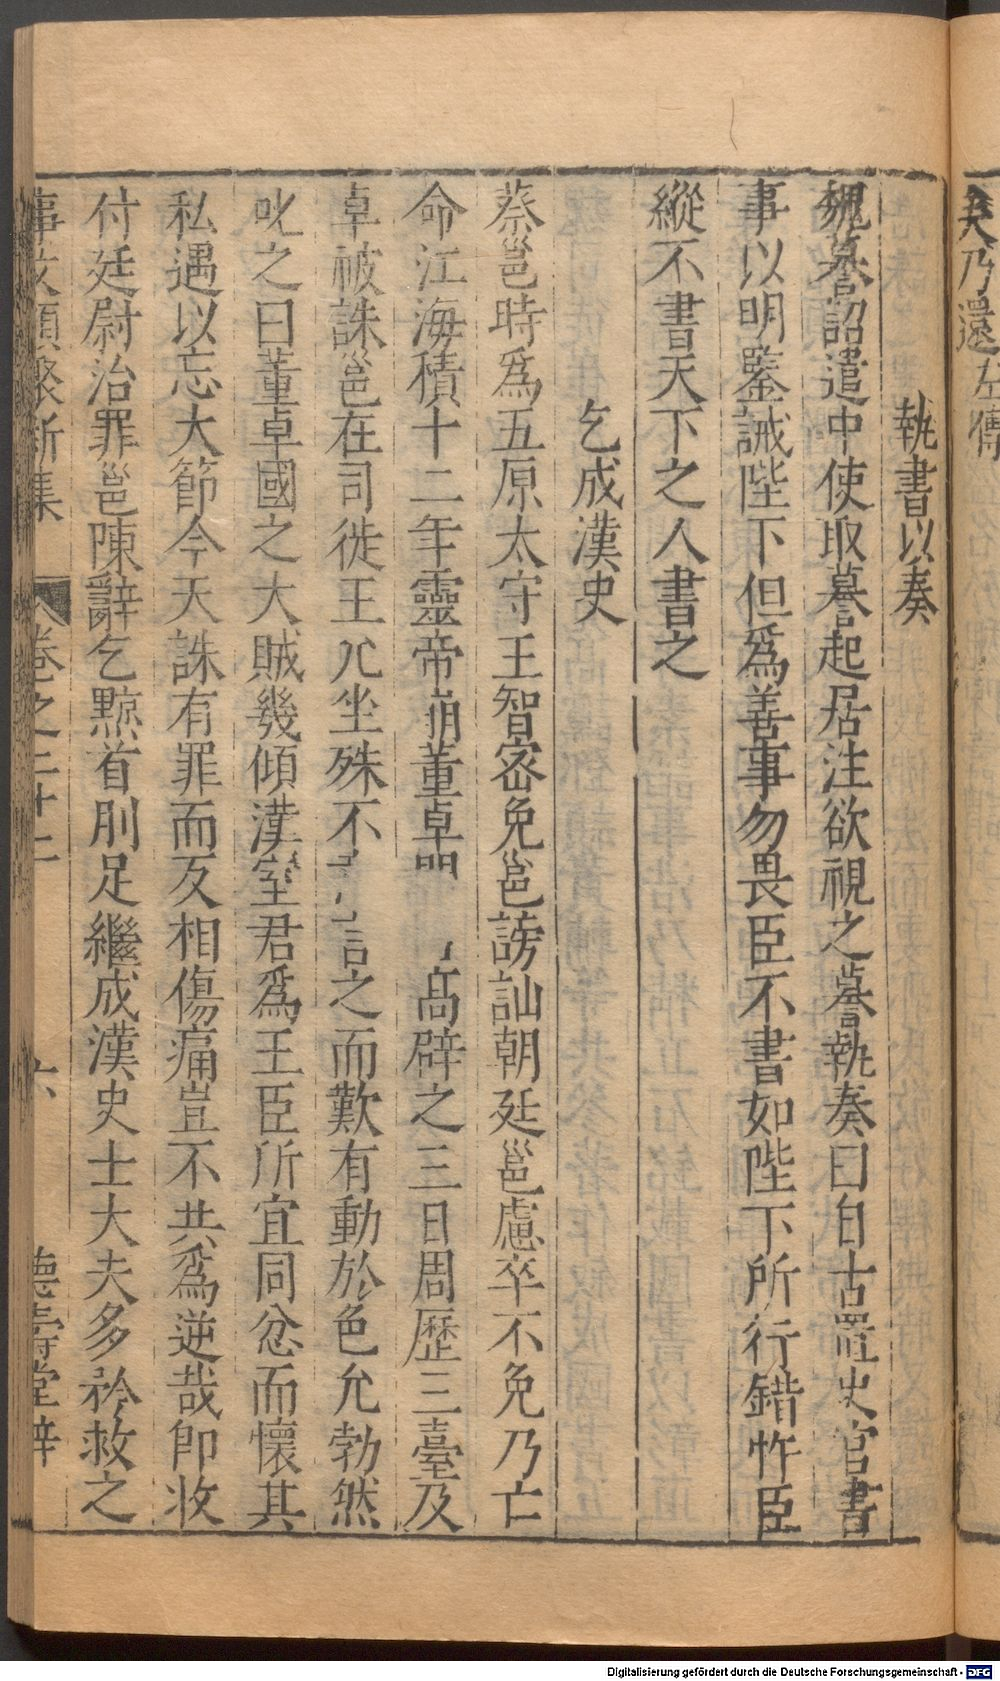 矣乃還左傳
執書以奏
魏謩詔遣中使取謩起居注欲視之謩執奏曰自古置史官書
事以明鑒誡陛下但爲善事勿畏臣不書如陛下所行錯忤臣
縱不書天下之人書之
乞成漢史
蔡邕時爲五原太守王智密免邕謗訕朝廷邕慮卒不免乃亡
命江海積十二年靈帝崩董卓高辟之三日周歷三臺及
卓被誅邕在司徒王允坐殊不言之而歎有動於色允勃然
叱之曰董卓國之大賊幾傾漢室君爲王臣所宜同忿而懷其
私遇以忘大節今天誅有罪而反相傷痛豈不共爲逆哉卽收
付廷尉治罪邕陳辭乞黥首刖足繼成漢史士大夫多矜救之
事文類聚新集 卷之二十二 六 德壽堂梓
Digitalisierung gefördert durch die Deutsche Forschungsgemeinschaft - DFG